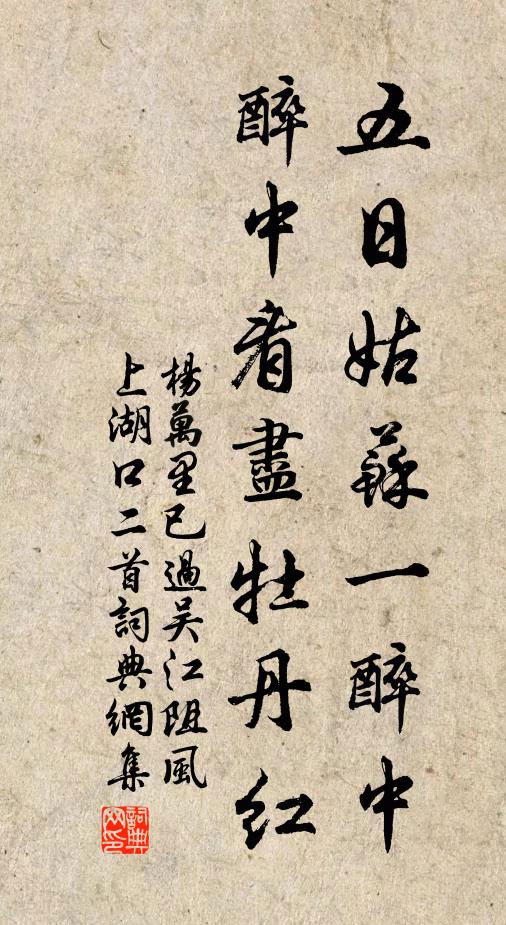 五日姑蘇一醉中
醉中看盡牡丹紅
楊萬里已過吴江阻風
上湖口二首詞典網集
詞典
网印